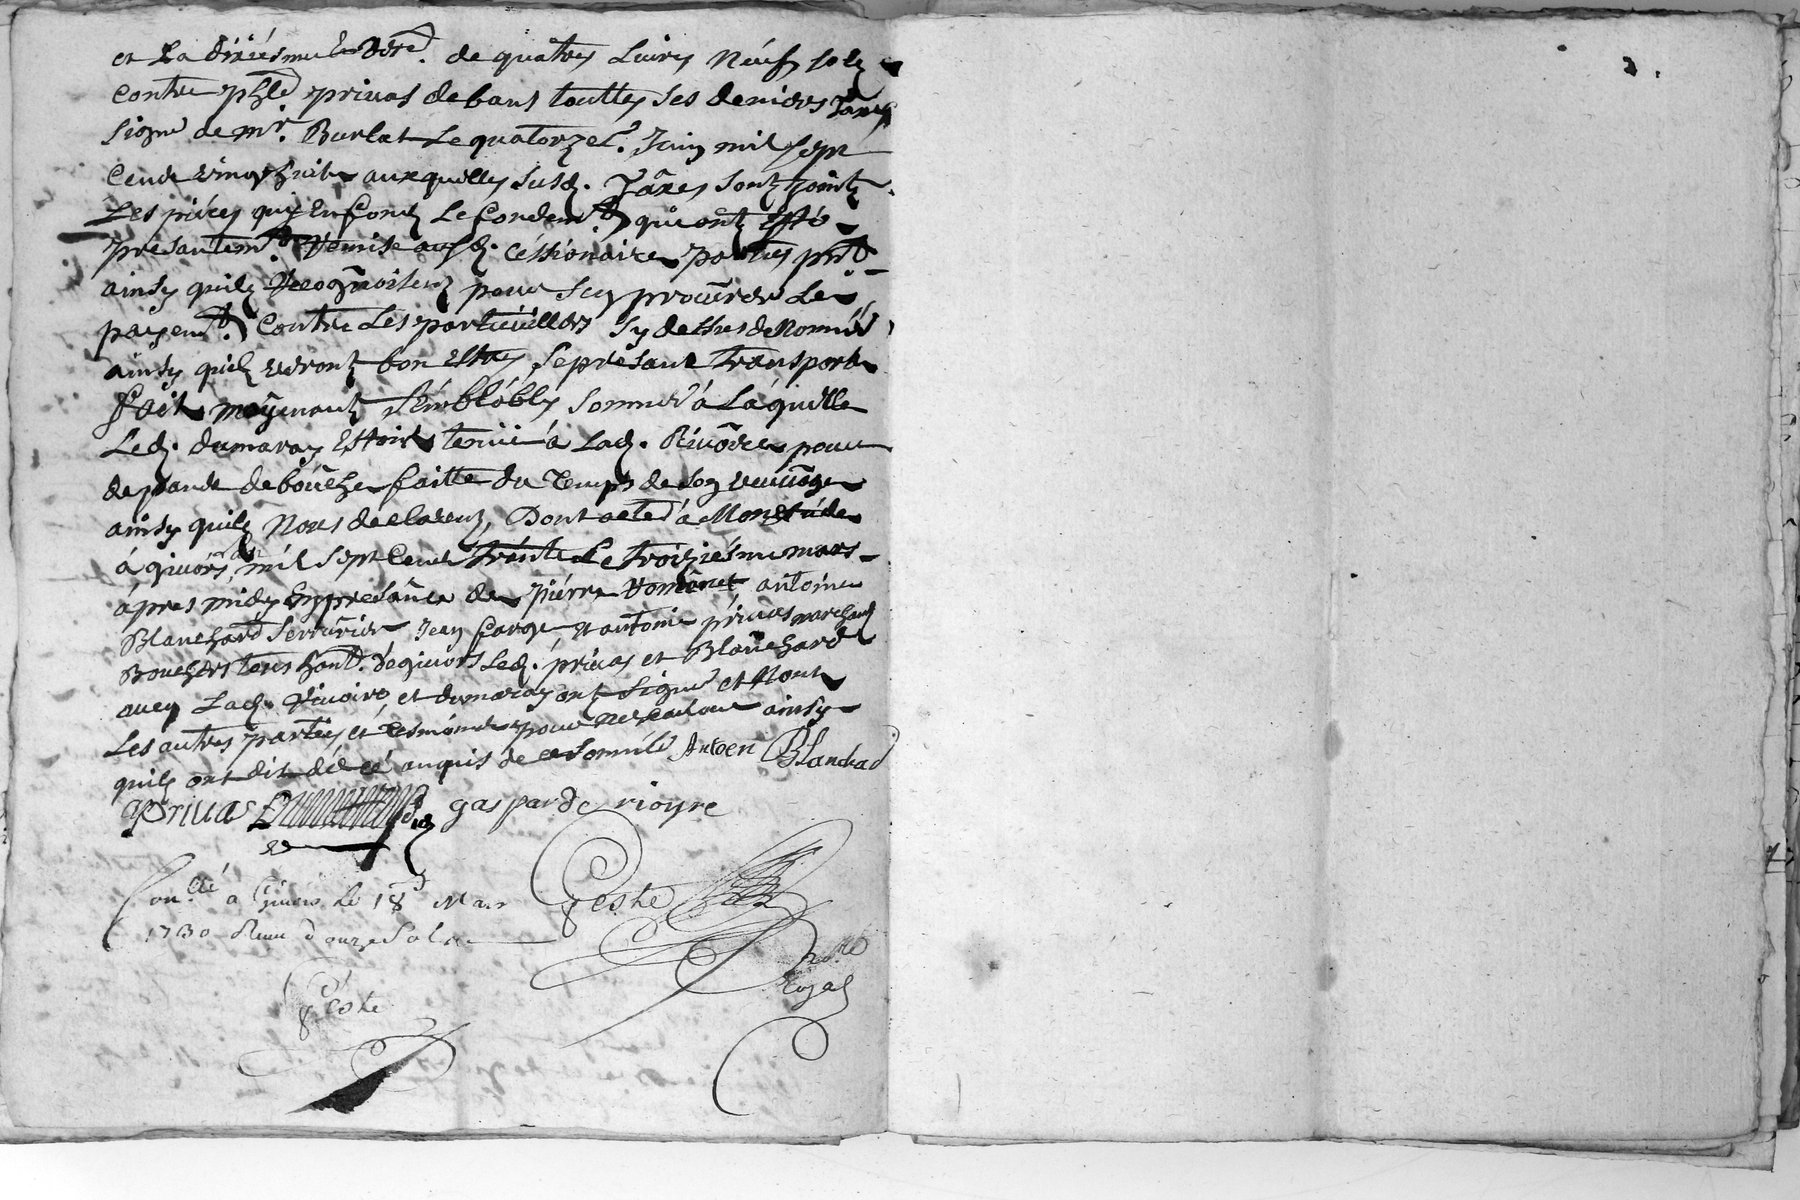 et La dixiesme de quatres Livres Neuf sols
contre phe privas de bans touttes ses derniers Taxes
signé de mr. Burlat Le quatorze Juin mil sept
Cent vingt huit auxquelles susd. Taxes sont joints
Les pièces quy En font Le fondemt. quiont Esté
présantemt. Remise ausd. Cessionaire parties pnt.
ainsy quilz Recognoissent pour sen procúrer Le
payemt. Contre Les particúlliers sy dessus dénommés
ainsy quilz verront bon Estre, Le présant transport
fait moyenant semblábles sommes à Láquelle
Led. dumaray Estoit tenüe à Lad. Rivoire pour
depance de boúche faitte du Temps de son veuvage
ainsy quilz Nous declarent, Dont acte à Mon Etúde
à givors Lan mil sept Cent trente Le troiziésme mars
ápres midy En présance de piérre antoine
Blanchard serrúrier Jean farge et antoine privas marchand
Bouchers tous habt. de givors Led. privas et Blanchard
avec Lad. Rivoire, et dumaray ont signé et Nont
Les autres parties et tesmoins pour ne sçavoir ainsy
quilz ont dit dé cé enquis de ce sommés Antoen Blanchad
Privas gasparde rioyre
Conllé à Givors le 18 Mars Geste
1730 Reçu douze Sols
No.re
Royal
Geste